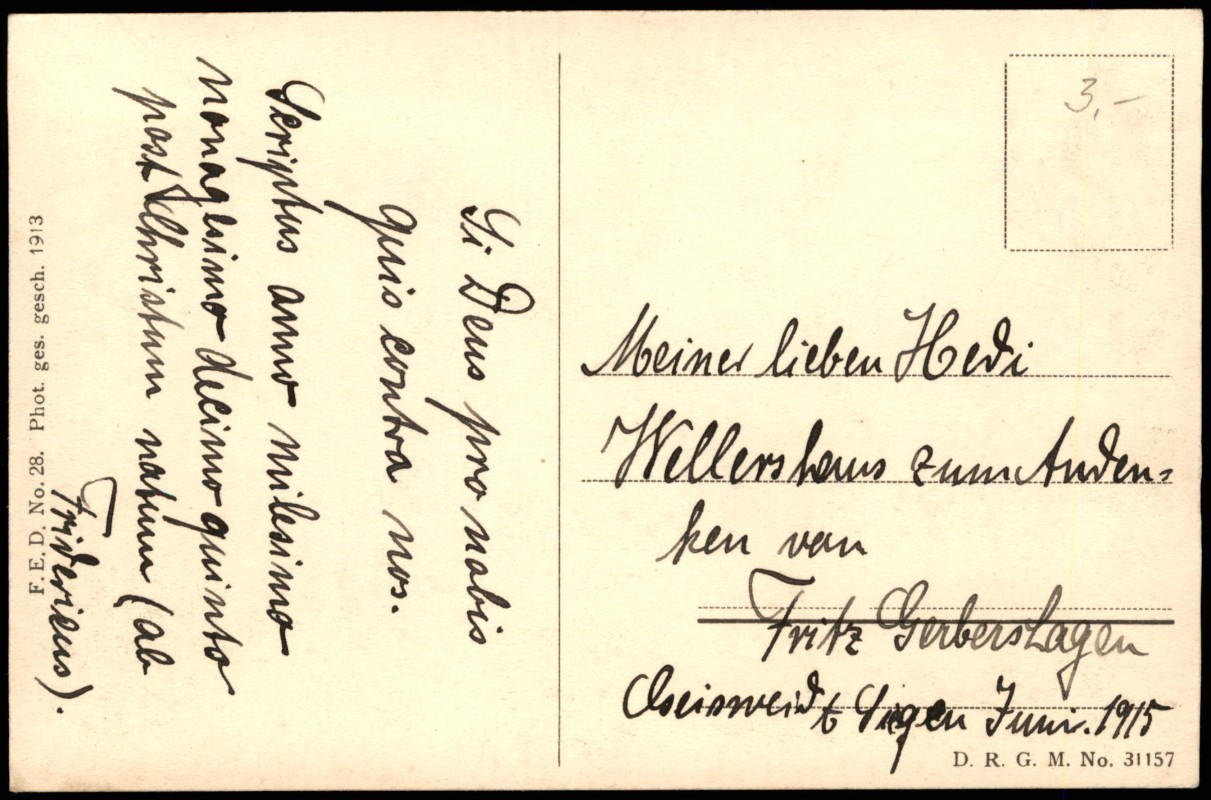 Si Deus pro nobis
quis contra nos.
Scriptus anno milesimo
nonagesimo decimo quinto
post Christum natum (ab
Fridericus).
F. E. D. No. 28. Phot. ges. gesch. 1913
3,-
Meiner lieben Hedi
Wellershaus zum Anden-
ken von
Fritz Gerbershagen
Siegen Juni. 1915
D. R. G. M. No. 31157